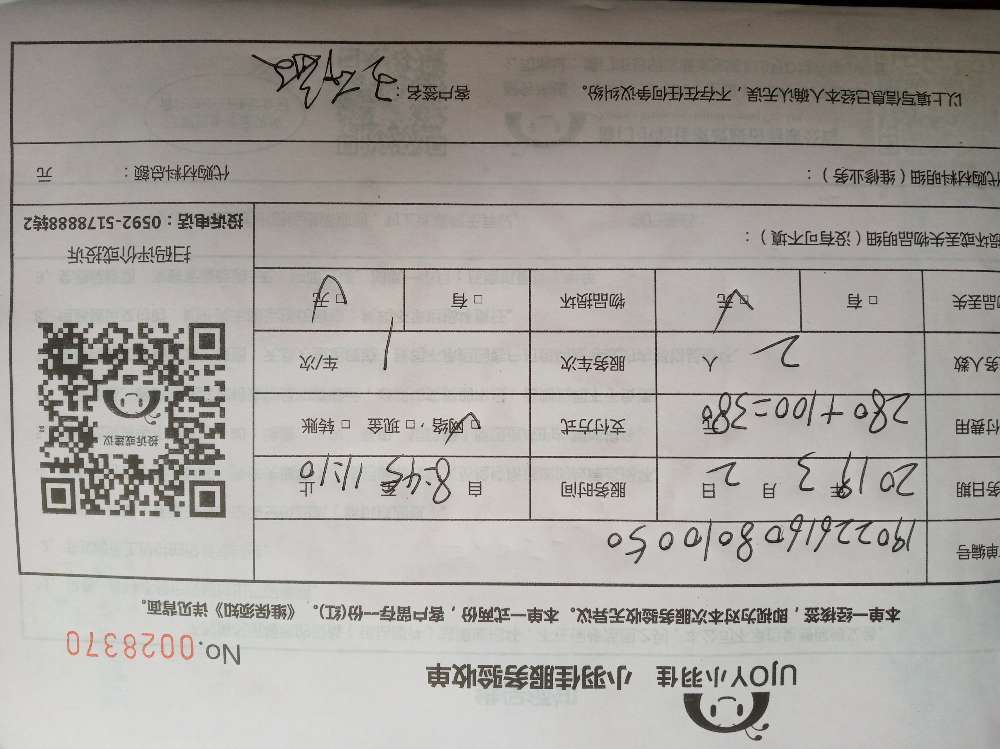 UJOY小羽佳 小羽佳服务验收单
No.0028370
本单一经接签，即视为对本次服务验收无异议。本单一式两份，客户留存一份(红)。《维保须知》详见背面。
单编号 19022616080100 50
务日期 2019年 3月 2日 服务时间 自 8:45 至 11:10 止
付费用 280+100=380元 支付方式 □网络，□现金 □转账
务人数 2人 服务车次 1 车/次
品丢失 □有 □无 物品损坏 □有 □无
损坏或丢失物品明细（没有可不填）：
投诉或建议
扫码评价或投诉
投诉电话：0592-5178888转2
代购材料明细（维修业务）： 代购材料总额： 元
以上填写信息已经本人确认无误，不存在任何争议纠纷。 客户签名：